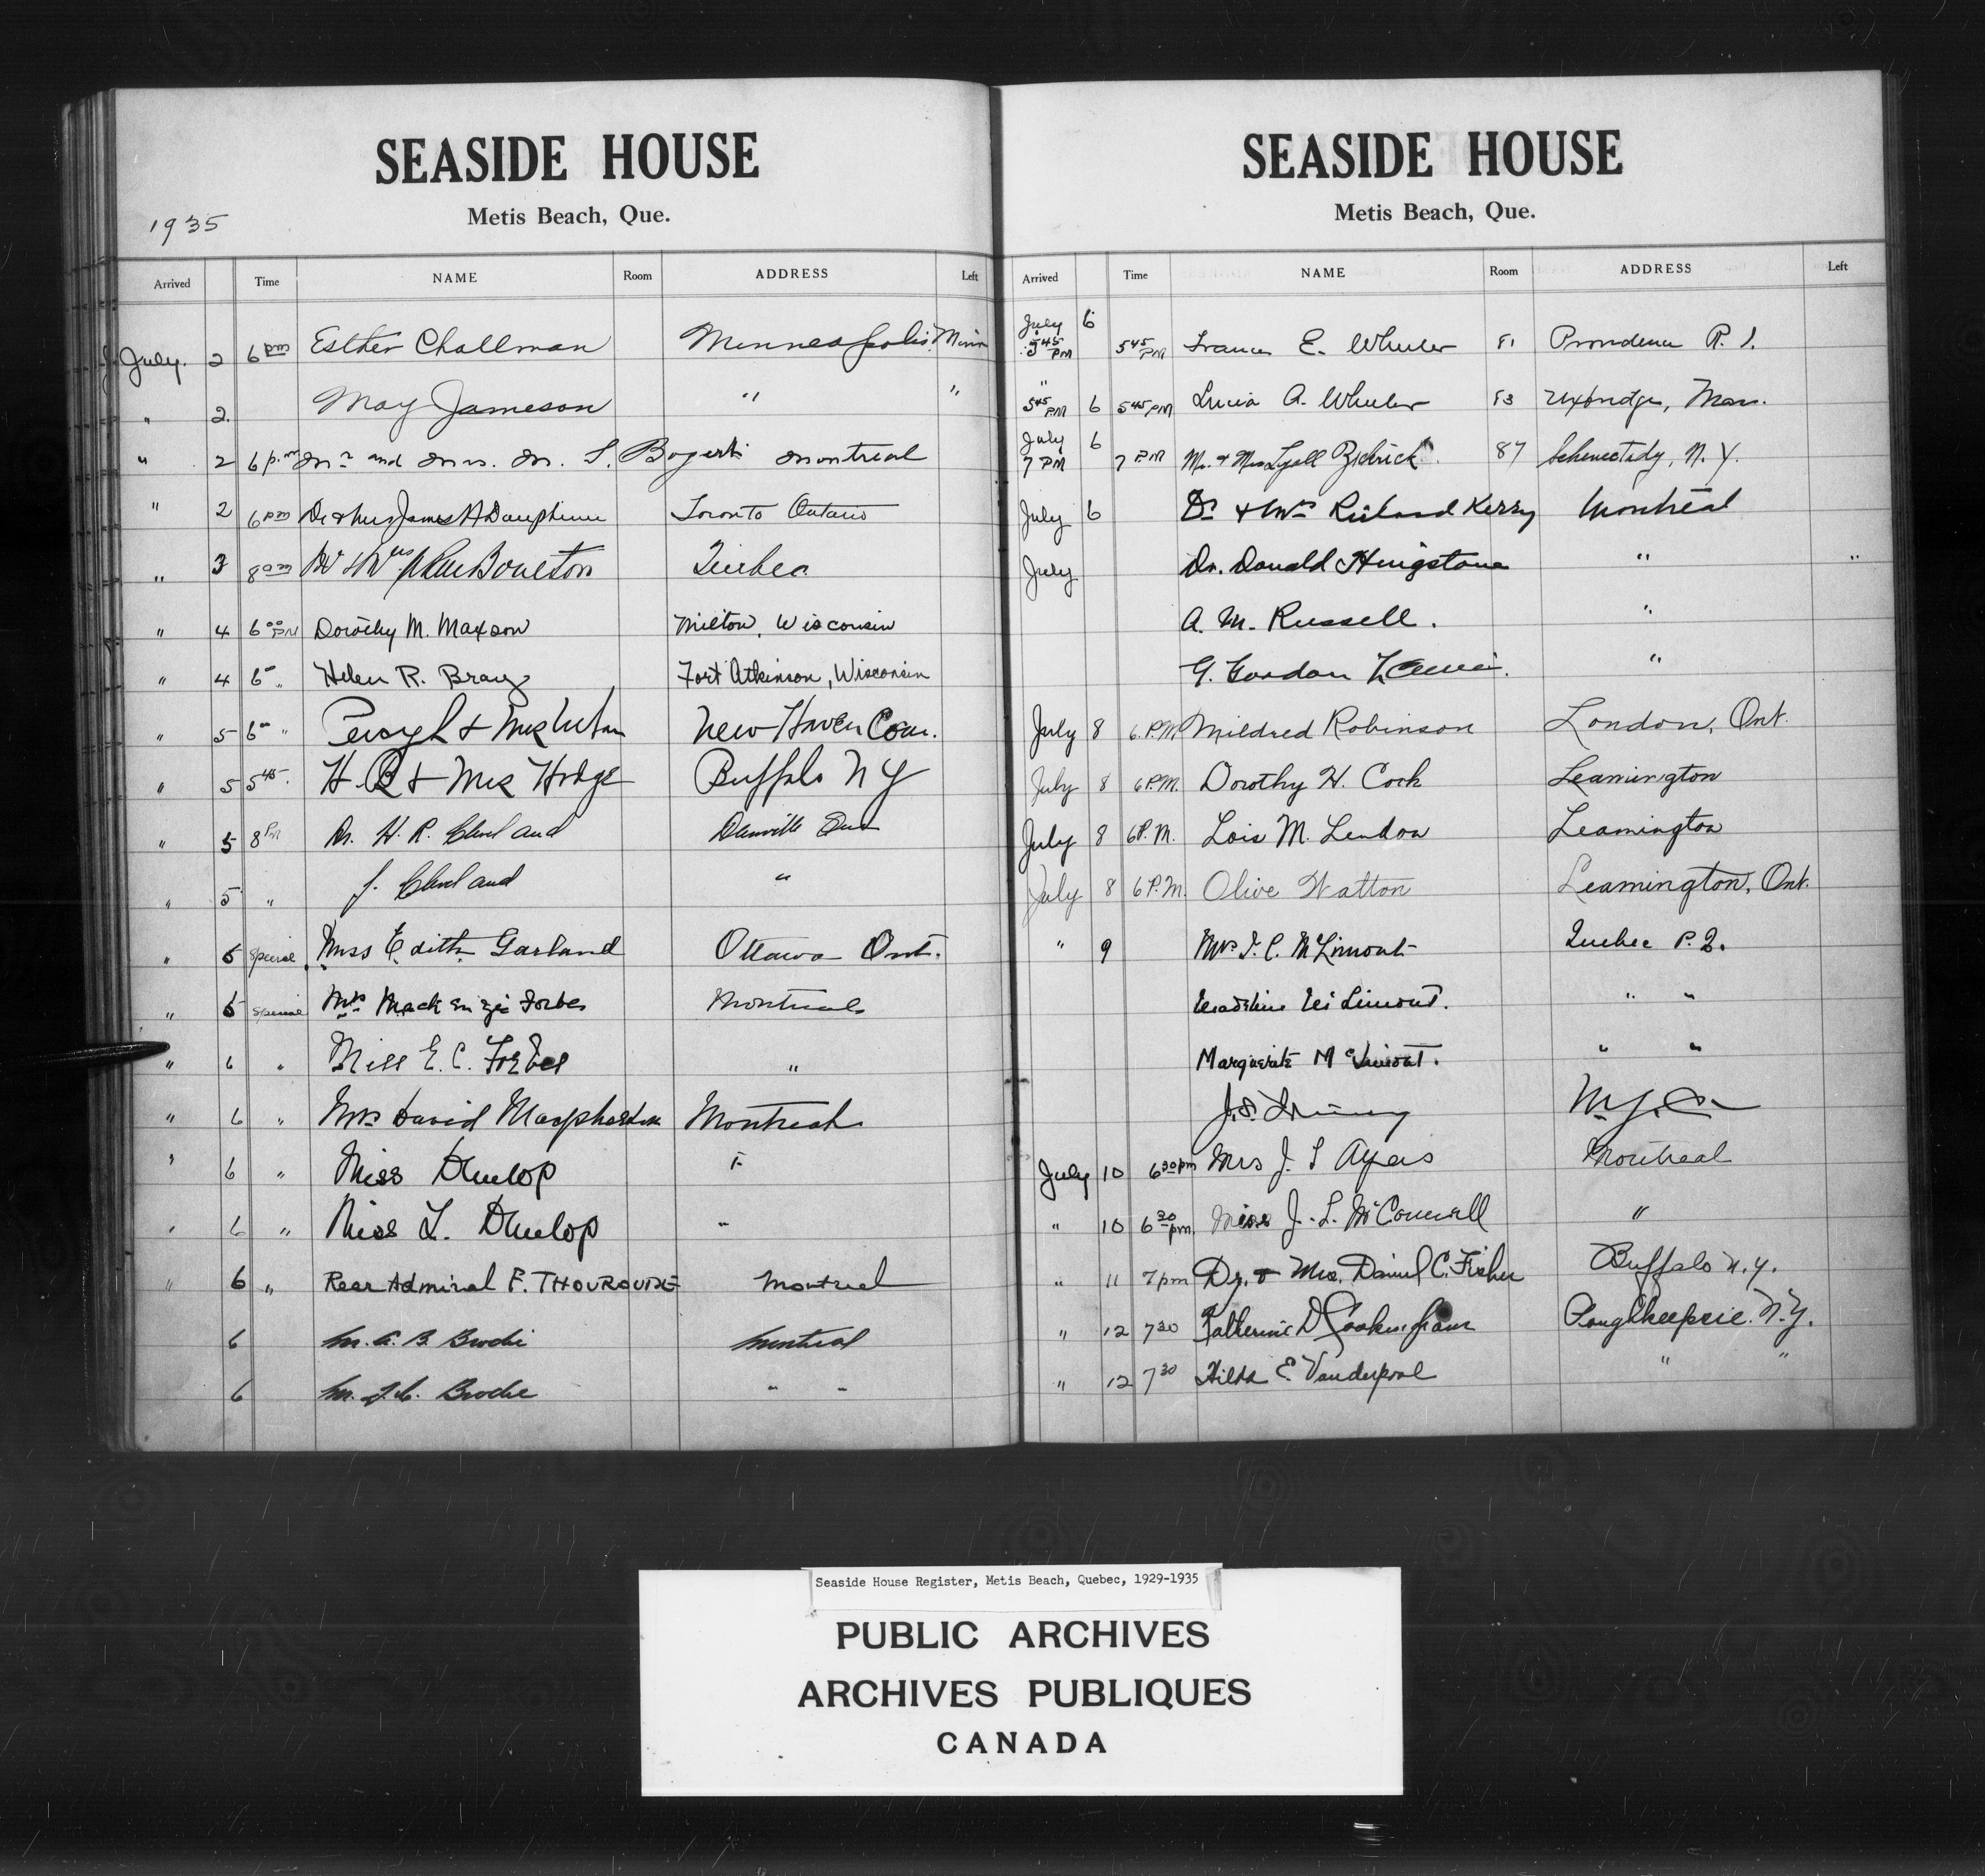 SEASIDE HOUSE
Metis Beach, Que.
1935
Arrived Time NAME Room ADDRESS Left
July. 2 6 pm Esther Challman Minneapolis, Minn
" 2. May Jameson " "
" 2 6 p.m Mr and Mrs. M. S. Bogert Montreal
" 2 6 pm Dr & Mrs James A Dauphinee Toronto Ontario
" 3 8 am Boulton Quebec
" 4 6 00 PM Dorothy M. Maxson Milton, Wisconsin
" 4 6 " Helen R. Bray Fort Atkinson, Wisconsin
" 5 6 " & Mrs New Haven Conn.
" 5 5 45 H. B & Mrs Hodge Buffalo N Y
" 5 8 PM Dr. H. R. Cleveland Danville Que
" 5 " J. Cleveland "
" 5 Special Miss Edith Garland Ottawa Ont.
" 5 Special Mrs Mackenzie Forbes Montreal
" 6 " Miss E. C. Forbes "
" 6 " Mrs David Macpherson Montreal
" 6 " Miss Dunlop "
" 6 " Miss L. Dunlop "
" 6 " Rear Admiral F. Montreal
6 Brodie Montreal
6 Brodie " "
SEASIDE HOUSE
Metis Beach, Que.
Arrived Time NAME Room ADDRESS Left
July 6 5 45 PM 5 45 PM Frances E. Wheeler 81 Providence R. I.
" 5 45 PM 6 5 45 PM Lucia A. Wheeler 83 Uxbridge, Mass.
July 6 7 PM 7 PM Mr. & Mrs Lyall Zickrick 87 Schenectady, N. Y.
July 6 Dr & Mrs Richard Kerry Montreal
July Dr. Donald Hingston " "
A. M. Russell. "
G. Gordon "
July 8 6 P.M. Mildred Robinson London, Ont.
July 8 6 P.M. Dorothy H. Cock Leamington
July 8 6 P.M. Lois M. Lendon Leamington
July 8 6 P.M. Olive Watton Leamington, Ont.
" 9 Mrs J. C. McLimont Quebec P. Q.
Madeline McLimont. " "
Marguerite McLimont. " "
N.Y.C.
July 10 6 30 pm Mrs J. T Ayers Montreal
" 10 6 30 pm. Miss J. L. McConnell "
" 11 7 pm Dr. & Mrs. Daniel C. Fisher Buffalo N.Y.
" 12 7 30 Katherine D Cookingham Poughkeepsie. N.Y.
" 12 7 30 Hilda E Vanderpool " "
Seaside House Register, Metis Beach, Quebec, 1929-1935
PUBLIC ARCHIVES
ARCHIVES PUBLIQUES
CANADA